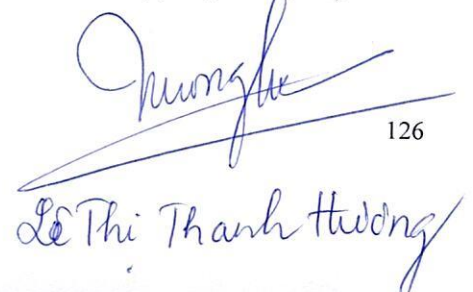 126
Lê Thị Thanh Hương